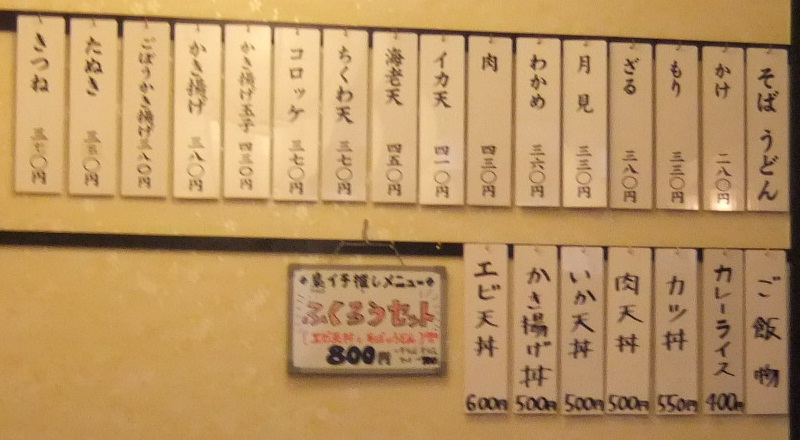 そば うどん
かけ 二八〇円
もり 三三〇円
ざる 三八〇円
月見 三三〇円
わかめ 三六〇円
肉 四三〇円
イカ天 四一〇円
海老天 四五〇円
ちくわ天 三七〇円
コロッケ 三七〇円
かき揚げ玉子 四三〇円
かき揚げ 三八〇円
ごぼうかき揚げ 三八〇円
たぬき 三五〇円
きつね 三七〇円
ご飯物
カレーライス 400円
カツ丼 550円
肉天丼 500円
いか天丼 500円
かき揚げ丼 500円
エビ天丼 600円
イチ推しメニュー
ふくろうセット
800円